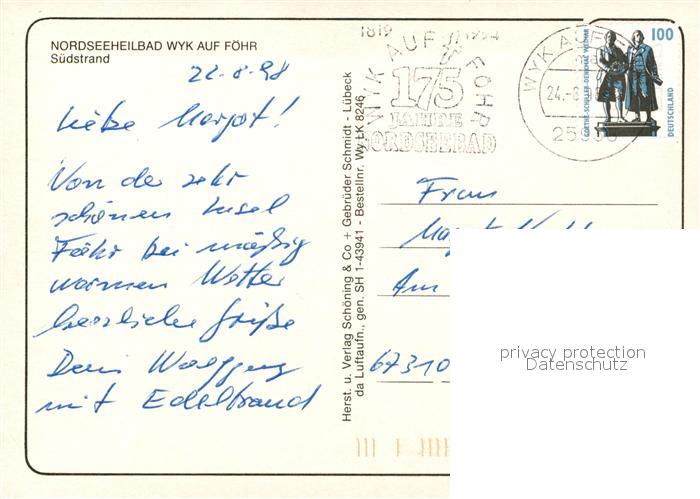 NORDSEEHEILBAD WYK AUF FÖHR
Südstrand
22-8-98
Liebe Margot!
Von der sehr
schönen Insel
Föhr bei mäßig
warmen Wetter
herzliche Grüße
Dein Wolfgang
mit Edeltraud
Herst. u. Verlag Schöning & Co + Gebrüder Schmidt - Lübeck
da Luftaufn., gen. SH 1-43941 - Bestellnr. Wy LK 8246
1819 1994
WYK AUF FÖHR
175
JAHRE
NORDSEEBAD
WYK AUF
24.-8.
GOETHE-SCHILLER-DENKMAL WEIMAR
100
DEUTSCHLAND
Frau
Am
67310
privacy protection
Datenschutz